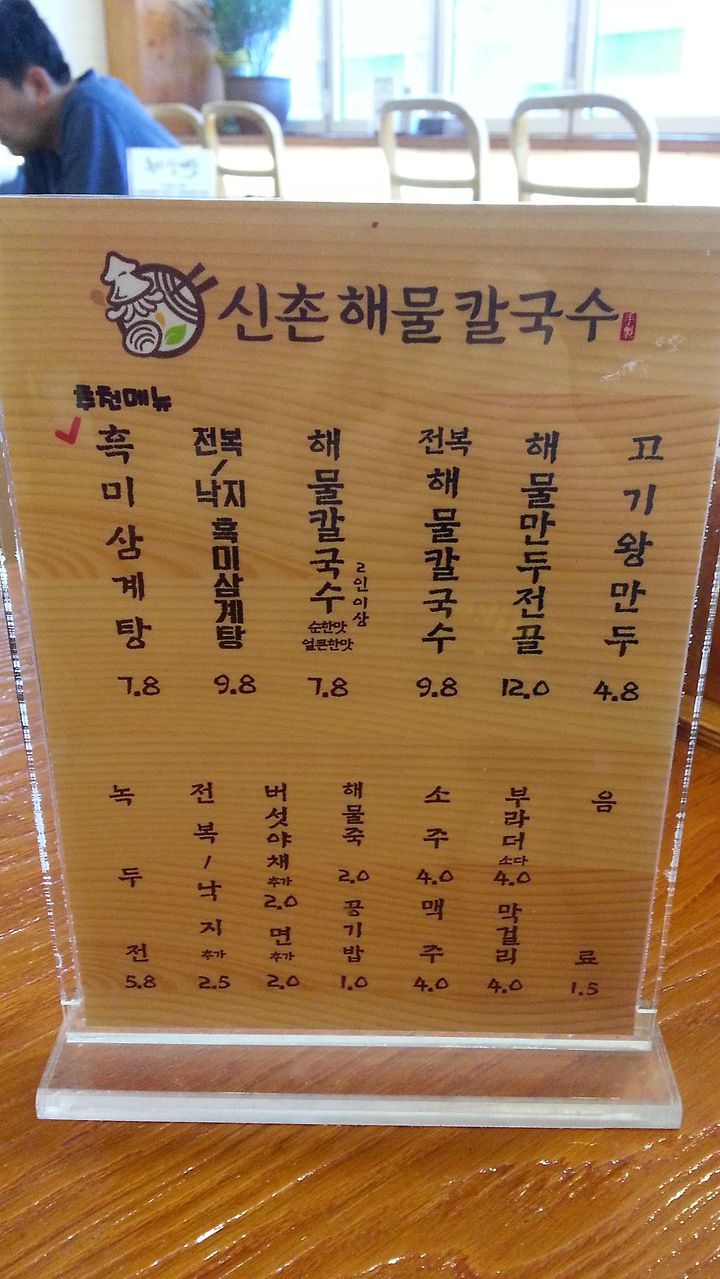 신촌해물칼국수
手製
추천메뉴
흑미삼계탕
7.8
전복/낙지 흑미삼계탕
9.8
해물칼국수
2인이상
순한맛
얼큰한맛
7.8
전복해물칼국수
9.8
해물만두전골
12.0
고기왕만두
4.8
녹두전
5.8
전복/낙지 추가
2.5
버섯야채 추가
2.0
면 추가
2.0
해물죽
2.0
공기밥
1.0
소주
4.0
맥주
4.0
부라더소다
4.0
막걸리
4.0
음료
1.5